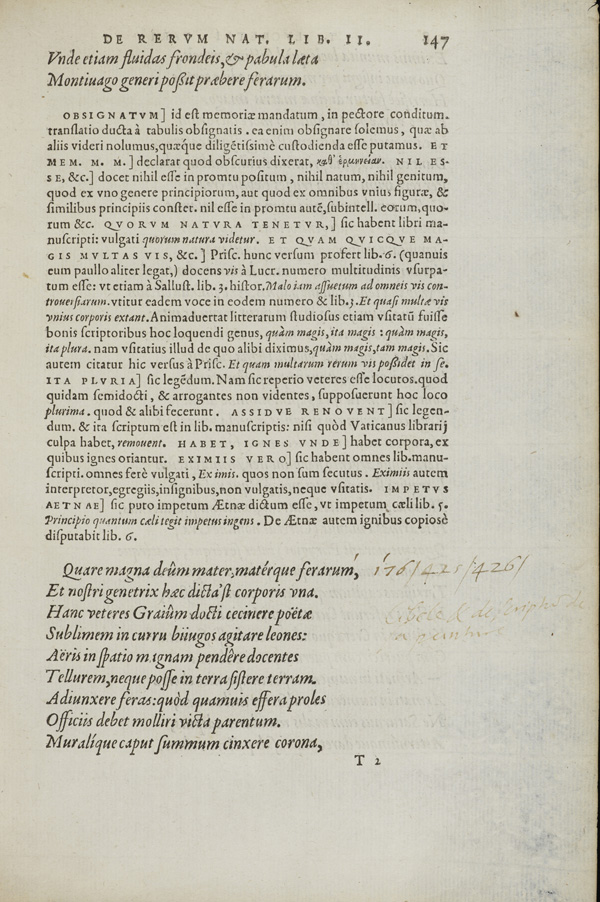 DE RERVM NAT. LIB. II. 147
Vnde etiam fluidas frondeis, & pabula læta
Montiuago generi poßit præbere ferarum.
OBSIGNATVM] id eſt memoriæ mandatum, in pectore conditum.
tranſlatio ducta à tabulis obſignatis. ea enim obſignare ſolemus, quæ ab
aliis videri nolumus, quæq́ue diligẽtiſſimè cuſtodienda eſſe putamus. ET
MEM. M. M.] declarat quod obſcurius dixerat, καθ' ἑρμηνείαν. NIL ES-
SE, &c.] docet nihil eſſe in promtu poſitum, nihil natum, nihil genitum,
quod ex vno genere principiorum, aut quod ex omnibus vnius figuræ, &
ſimilibus principiis conſtet. nil eſſe in promtu autẽ, ſubintell. eorum, quo-
rum &c. QVORVM NATVRA TENETVR,] ſic habent libri ma-
nuſcripti: vulgati quorum natura videtur. ET QVAM QVICQVE MA-
GIS MVLTAS VIS, &c.] Priſc. hunc verſum profert lib. 6. (quanuis
eum paullo aliter legat,) docens vis à Lucr. numero multitudinis vſurpa-
tum eſſe: vt etiam à Salluſt. lib. 3. hiſtor. Malo iam aſſuetum ad omneis vis con-
trouerſiarum. vtitur eadem voce in eodem numero & lib. 3. Et quaſi multæ vis
vnius corporis extant. Animaduertat litterarum ſtudioſus etiam vſitatũ fuiſſe
bonis ſcriptoribus hoc loquendi genus, quàm magis, ita magis: quàm magis,
ita plura. nam vſitatius illud de quo alibi diximus, quàm magis, tam magis. Sic
autem citatur hic verſus à Priſc. Et quam multarum rerum vis poßidet in ſe.
ITA PLVRIA] ſic legẽdum. Nam ſic reperio veteres eſſe locutos. quod
quidam ſemidocti, & arrogantes non videntes, ſuppoſuerunt hoc loco
plurima. quod & alibi fecerunt. ASSIDVE RENOVENT] ſic legen-
dum. & ita ſcriptum eſt in lib. manuſcriptis: niſi quòd Vaticanus librarij
culpa habet, remouent. HABET, IGNES VNDE] habet corpora, ex
quibus ignes oriantur. EXIMIIS VERO] ſic habent omnes lib. manu-
ſcripti. omnes ferè vulgati, Ex imis. quos non ſum ſecutus. Eximiis autem
interpretor, egregiis, inſignibus, non vulgatis, neque vſitatis. IMPETVS
AETNAE] ſic puto impetum Ætnæ dictum eſſe, vt impetum cæli lib. 5.
Principio quantum cæli tegit impetus ingens. De Ætnæ autem ignibus copiosè
diſputabit lib. 6.
Quare magna deûm mater, matérque ferarum, 176/425/426/
Et noſtri genetrix hæc dicta'ſt corporis vna.
Hanc veteres Graiûm docti cecinere poëtæ
Sublimem in curru biiugos agitare leones:
Aëris in ſpatio magnam pendêre docentes
Tellurem, neque poſſe in terra ſiſtere terram.
Adiunxere feras: quòd quamuis effera proles
Officiis debet molliri victa parentum.
Muralíque caput ſummum cinxere corona,
T 2